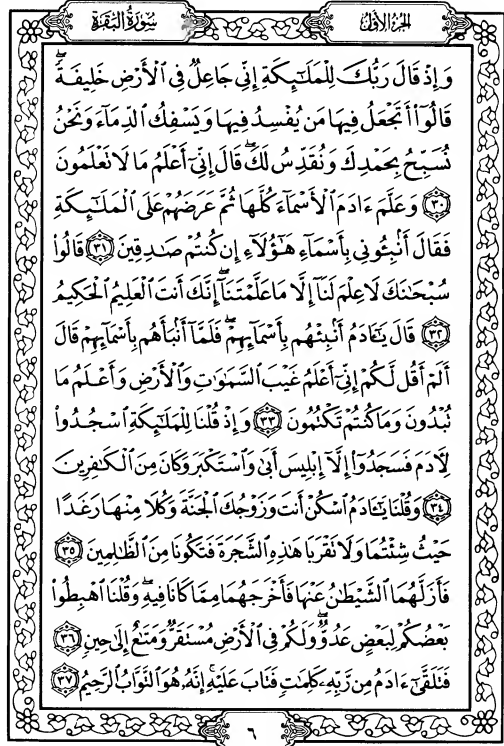 الجزء الأول
سورة البقرة
وَإِذْ قَالَ رَبُّكَ لِلْمَلَٰٓئِكَةِ إِنِّى جَاعِلٌ فِى ٱلْأَرْضِ خَلِيفَةً ۖ
قَالُوٓا۟ أَتَجْعَلُ فِيهَا مَن يُفْسِدُ فِيهَا وَيَسْفِكُ ٱلدِّمَآءَ وَنَحْنُ
نُسَبِّحُ بِحَمْدِكَ وَنُقَدِّسُ لَكَ ۖ قَالَ إِنِّىٓ أَعْلَمُ مَا لَا تَعْلَمُونَ
٣٠ وَعَلَّمَ ءَادَمَ ٱلْأَسْمَآءَ كُلَّهَا ثُمَّ عَرَضَهُمْ عَلَى ٱلْمَلَٰٓئِكَةِ
فَقَالَ أَنۢبِـُٔونِى بِأَسْمَآءِ هَٰٓؤُلَآءِ إِن كُنتُمْ صَٰدِقِينَ ٣١ قَالُوا۟
سُبْحَٰنَكَ لَا عِلْمَ لَنَآ إِلَّا مَا عَلَّمْتَنَآ ۖ إِنَّكَ أَنتَ ٱلْعَلِيمُ ٱلْحَكِيمُ
٣٢ قَالَ يَٰٓـَٔادَمُ أَنۢبِئْهُم بِأَسْمَآئِهِمْ ۖ فَلَمَّآ أَنۢبَأَهُم بِأَسْمَآئِهِمْ قَالَ
أَلَمْ أَقُل لَّكُمْ إِنِّىٓ أَعْلَمُ غَيْبَ ٱلسَّمَٰوَٰتِ وَٱلْأَرْضِ وَأَعْلَمُ مَا
تُبْدُونَ وَمَا كُنتُمْ تَكْتُمُونَ ٣٣ وَإِذْ قُلْنَا لِلْمَلَٰٓئِكَةِ ٱسْجُدُوا۟
لِـَٔادَمَ فَسَجَدُوٓا۟ إِلَّآ إِبْلِيسَ أَبَىٰ وَٱسْتَكْبَرَ وَكَانَ مِنَ ٱلْكَٰفِرِينَ
٣٤ وَقُلْنَا يَٰٓـَٔادَمُ ٱسْكُنْ أَنتَ وَزَوْجُكَ ٱلْجَنَّةَ وَكُلَا مِنْهَا رَغَدًا
حَيْثُ شِئْتُمَا وَلَا تَقْرَبَا هَٰذِهِ ٱلشَّجَرَةَ فَتَكُونَا مِنَ ٱلظَّٰلِمِينَ ٣٥
فَأَزَلَّهُمَا ٱلشَّيْطَٰنُ عَنْهَا فَأَخْرَجَهُمَا مِمَّا كَانَا فِيهِ ۖ وَقُلْنَا ٱهْبِطُوا۟
بَعْضُكُمْ لِبَعْضٍ عَدُوٌّ ۖ وَلَكُمْ فِى ٱلْأَرْضِ مُسْتَقَرٌّ وَمَتَٰعٌ إِلَىٰ حِينٍ ٣٦
فَتَلَقَّىٰٓ ءَادَمُ مِن رَّبِّهِۦ كَلِمَٰتٍ فَتَابَ عَلَيْهِ ۚ إِنَّهُۥ هُوَ ٱلتَّوَّابُ ٱلرَّحِيمُ ٣٧
٦